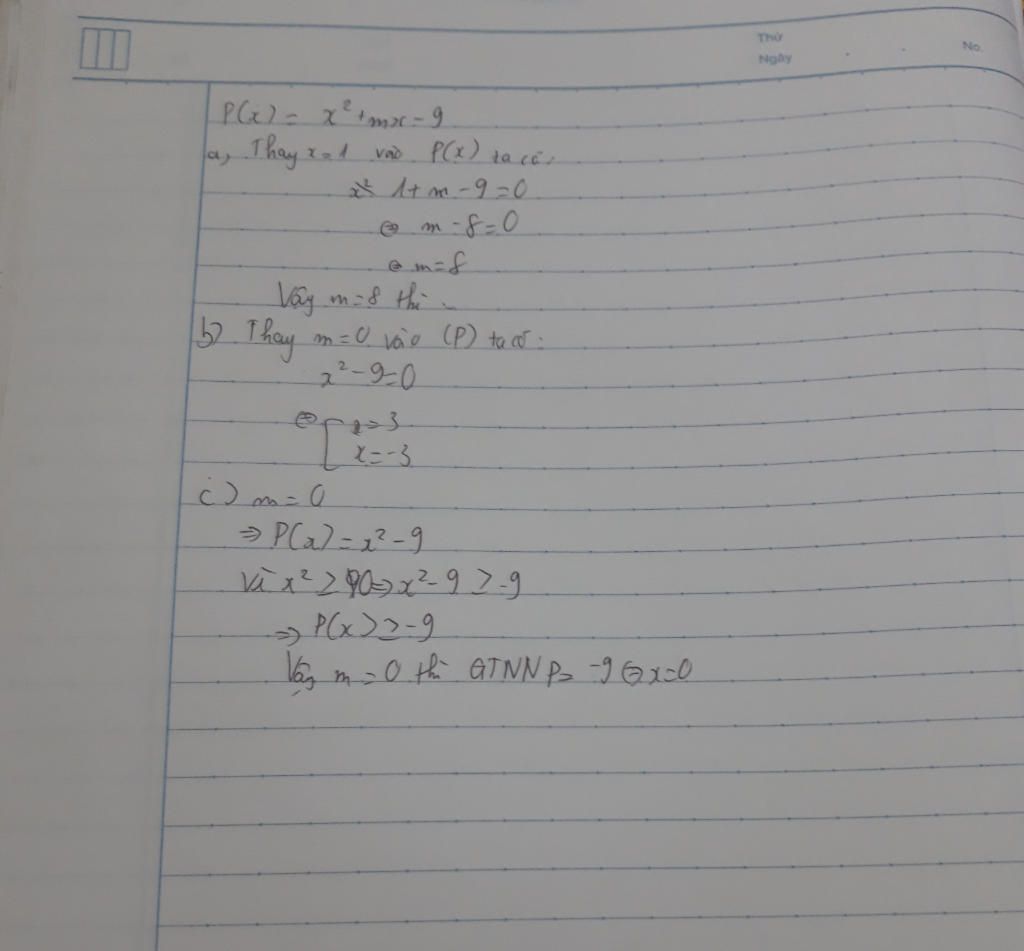 Thứ
Ngày
No.
P(x) = x² + mx - 9
a, Thay x = 1 vào P(x) ta có:
1 + m - 9 = 0
⇔ m - 8 = 0
⇔ m = 8
Vậy m = 8 thì
b) Thay m = 0 vào (P) ta có:
x² - 9 = 0
⇔ [ x = 3
x = -3
c) m = 0
⇒ P(x) = x² - 9
Vì x² ≥ 0 ⇒ x² - 9 ≥ -9
⇒ P(x) ≥ -9
Vậy m = 0 thì GTNN P = -9 ⇔ x = 0